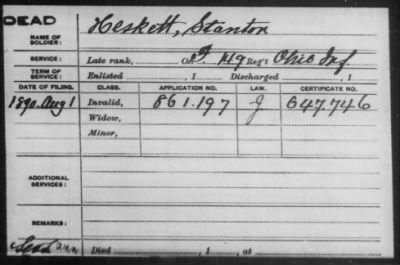 DEAD
NAME OF SOLDIER: Heskett, Stanton
SERVICE: Late rank, Co. G, 149 Reg't Ohio Inf
TERM OF SERVICE: Enlisted , 1 Discharged , 1
DATE OF FILING. CLASS. APPLICATION NO. LAW. CERTIFICATE NO.
1890. Aug 1 Invalid, 861.197 J 647.746
Widow,
Minor,
ADDITIONAL SERVICES:
REMARKS:
Died , 1 , at